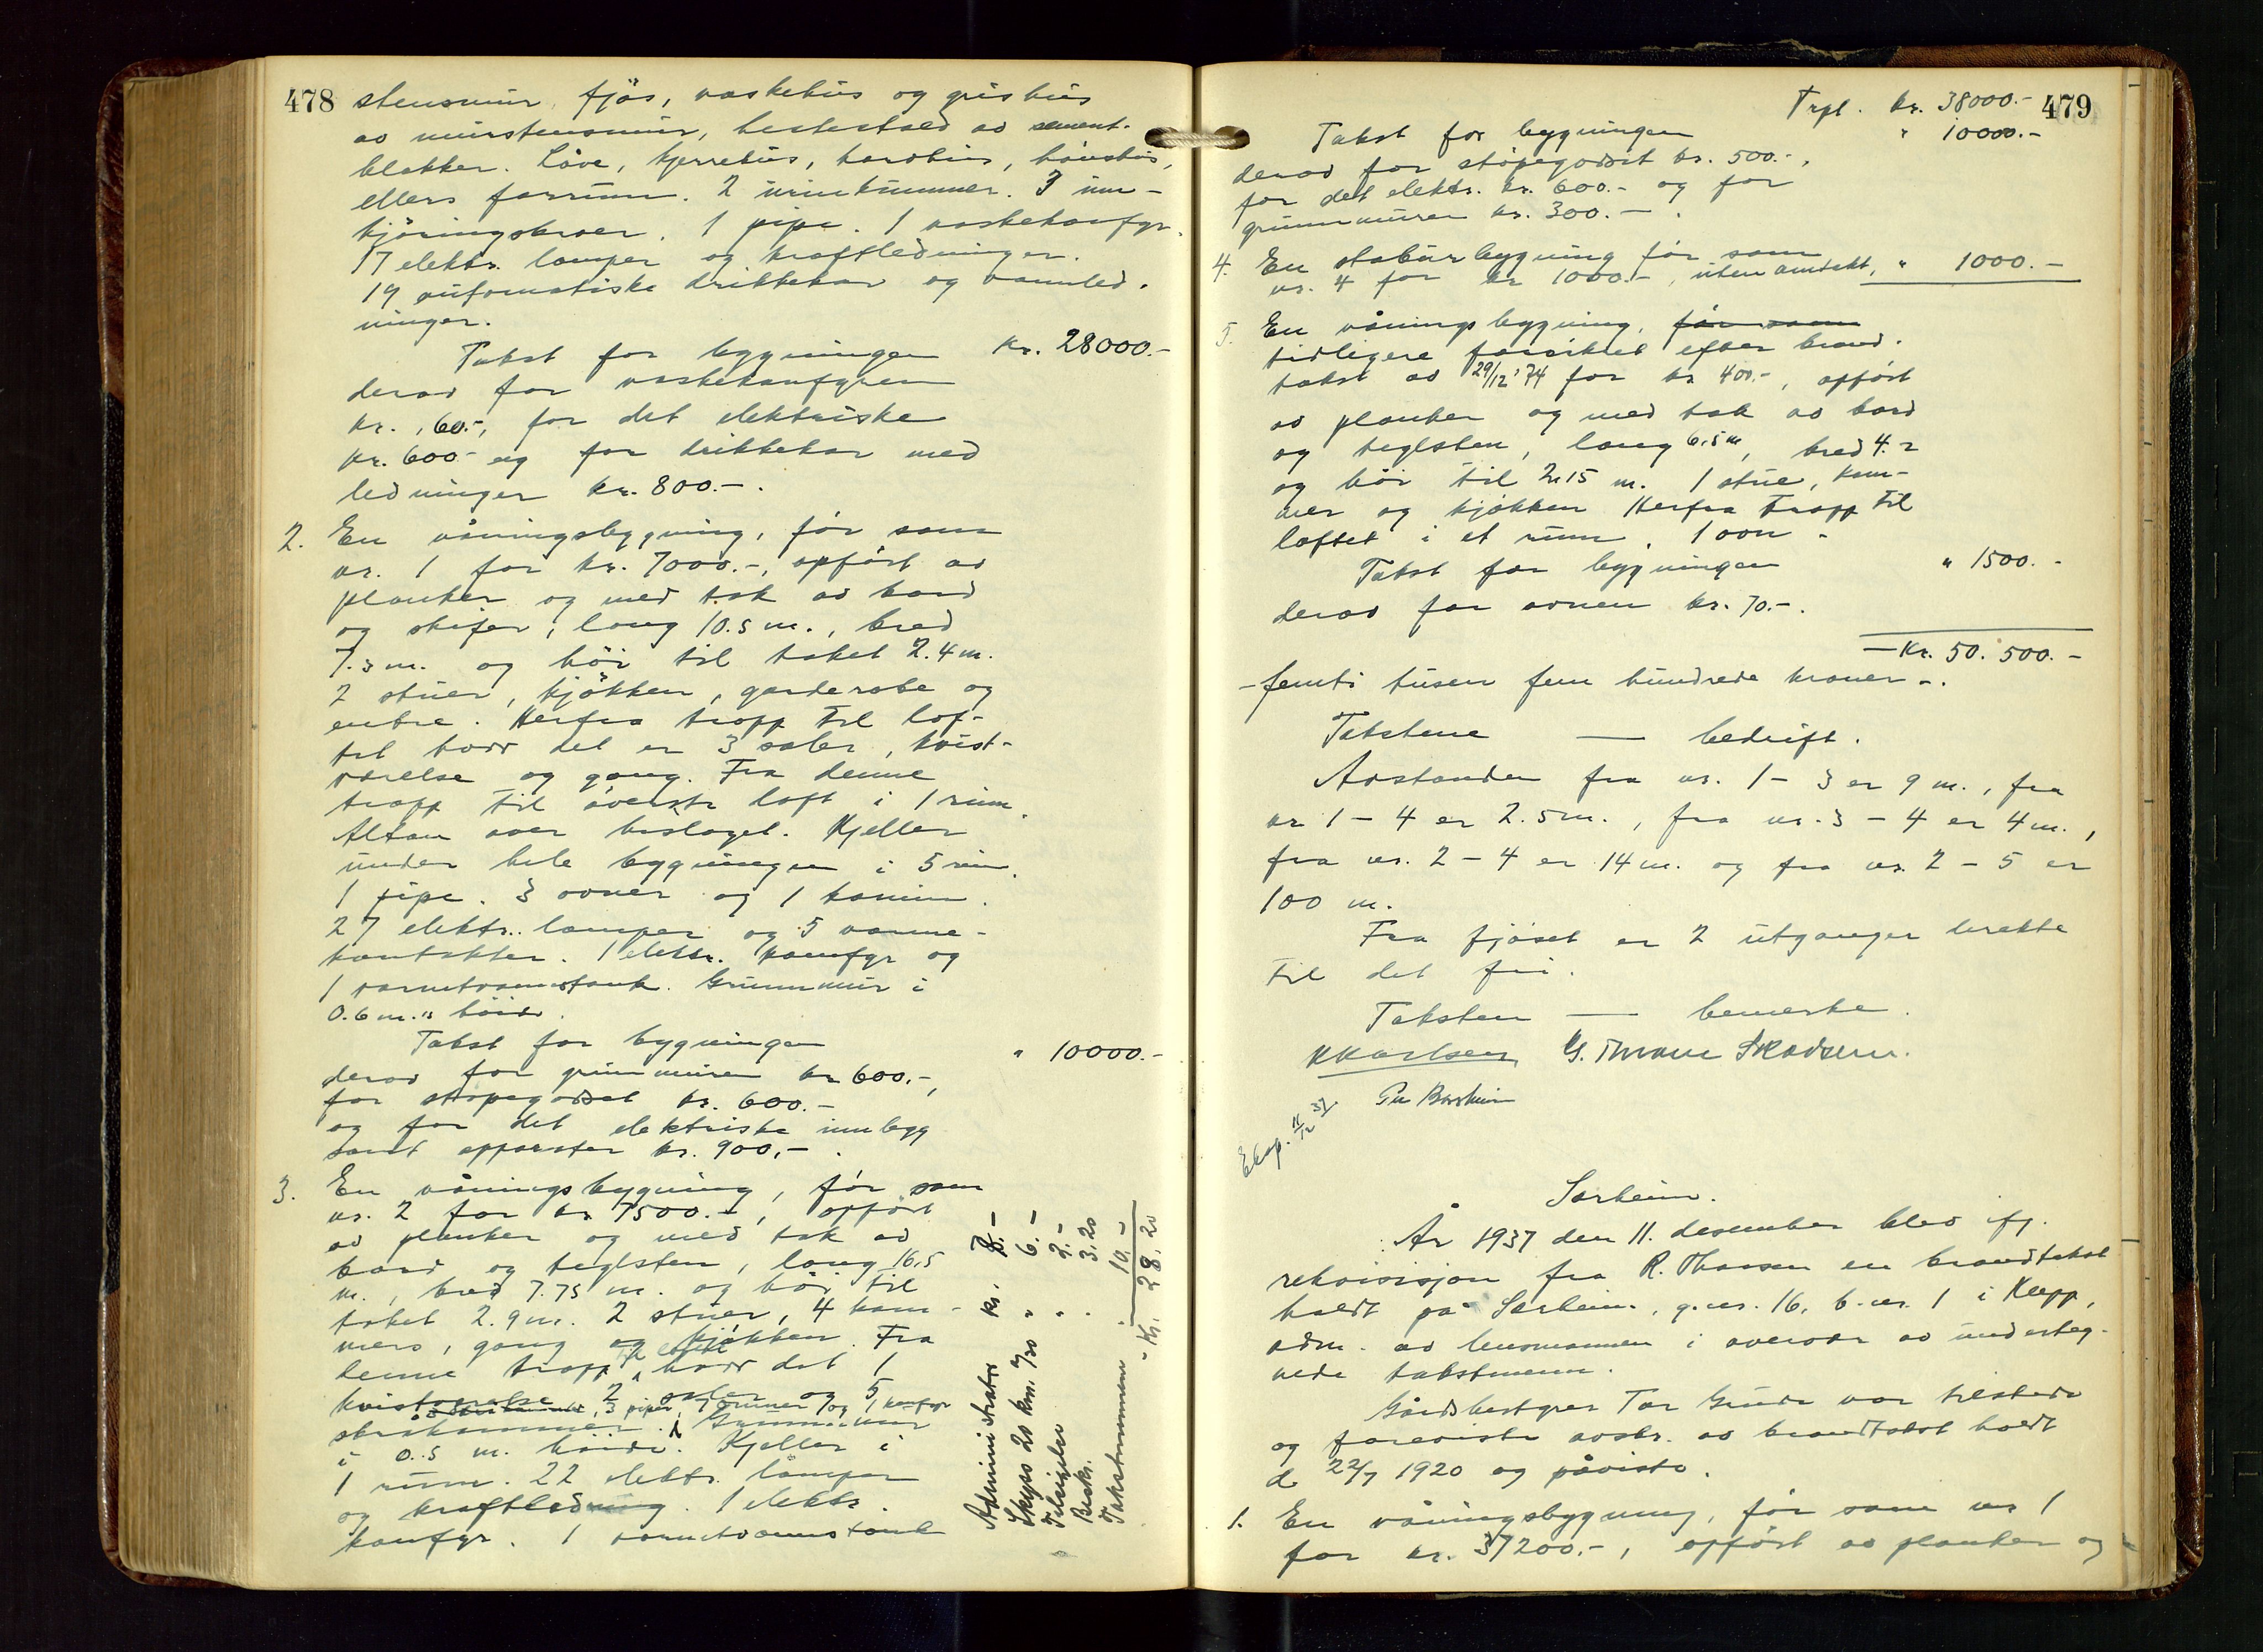 478
stensmur, fjös, vaskehus og grishus
av murstensmur, hestestald av sement-
blokker. Låve, kjerrehus, hönshus,
ellers forrum. 2 urinkummer. 3 inn-
kjöringsbroer. 1 pipe. 1 vaskekomfyr.
17 elektr. lamper og kraftledninger.
19 automatiske drikkekar og vannled-
ninger.
Takst for bygningen kr. 28000.-
derav for vaskekomfyren
kr. 60.-, for det elektriske
kr. 600.- og for drikkekar med
ledninger kr. 800.-.
2. En våningsbygning, för som
nr. 1 for kr. 7000.-, opfört av
planker og med tak av bord
og skifer, lang 10.5 m., bred
7.3 m. og höi til taket 2.4 m.
2 stuer, kjökken, garderobe og
entre. Herfra trapp til lof-
tet hvor det er 3 saler, kvist-
værelse og gang. Fra denne
trapp til överste loft i 1 rum.
Altan over bislaget. Kjeller
under hele bygningen i 5 rum.
1 pipe. 3 ovner og 1 kamin.
27 elektr. lamper og 5 varme-
kontakter. 1 elektr. komfyr og
1 varmtvannstank. Grunnmur i
0.6 m.s höide.
Takst for bygningen " 10000.-
derav for grunnmuren kr 600.-,
for stöpegodset kr. 600.-
og for det elektriske innlegg
samt apparater kr. 900,-.
3. En våningsbygning, för som
nr. 2 for kr 7500.-, opfört
av planker og med tak av
bord og teglsten, lang 16,5
m., bred 7.75 m. og höi til
taket 2.9 m. 2 stuer, 4 kam-
mers, gang og kjökken. Fra
til loftet
denne trapp, hvor det 1
kvistværelse, 2 saler og 5
3 piper, 7 ovner og 1 komfyr
skråkammer. Grunnmur
i 0.5 m. höide. Kjeller i
1 rum. 22 elektr. lamper
og kraftledning. 1 elektr.
komfyr. 1 varmtvannstank
Administrator kr. 8.-
Skyss 20 km. 7/30 " 6.-
Tilsigelse " 2.-
Beskr. 3,20
Takstmennene 10.-
- Kr. 28,20
479
Trpl. kr. 38000.-
Takst for bygningen " 10000.-
derav for stöpegodset kr. 500.-,
for det elektr. kr. 600.- og for
grunnmuren kr. 300.-.
4. En stabursbygning för som
nr. 4 for kr 1000.-, uten avtakt, " 1000.-
5. En våningsbygning, för som
tidligere forsikret efter brand-
takst av 29/12 '74 for kr 400.-, opfört
av planker og med tak av bord
og teglsten, lang 6,5 m, bred 4.2
og höi til 2,15 m. 1 stue, kam-
mer og kjökken Herfra trapp til
loftet i et rum. 1 ovn.
Takst for bygningen " 1500.-
derav for ovnen kr. 70.-.
- Kr. 50.500.-
- femti tusen fem hundrede kroner -.
Takstene — bedrift.
Avstanden fra nr. 1 - 3 er 9 m., fra
nr 1 - 4 er 2.5 m., fra nr. 3 - 4 er 4 m.,
fra nr. 2 - 4 er 14 m. og fra nr. 2 - 5 er
100 m.
Fra fjöset er 2 utganger direkte
til det fri.
Taksten — bemerke.
KKarlsen G. Thrane Skadsem.
Per Borsheim
Eksp. 11/12 37.
Særheim.
År 1937 den 11. desember blev ifg.
rekvisisjon fra R. Thorsen en brandtakst
holdt på Særheim, g.nr. 16, b.nr. 1 i Klepp,
adm. av lensmannen i overvær av underteg-
nede takstmenn.
Gårdsbestyrer Tor Grude var tilstede
og foreviste avskr. av brandtakst holdt
d 22/7 1920 og påviste.
1. En våningsbygning, för som nr 1
for kr. 37200.-, opfört av planker og